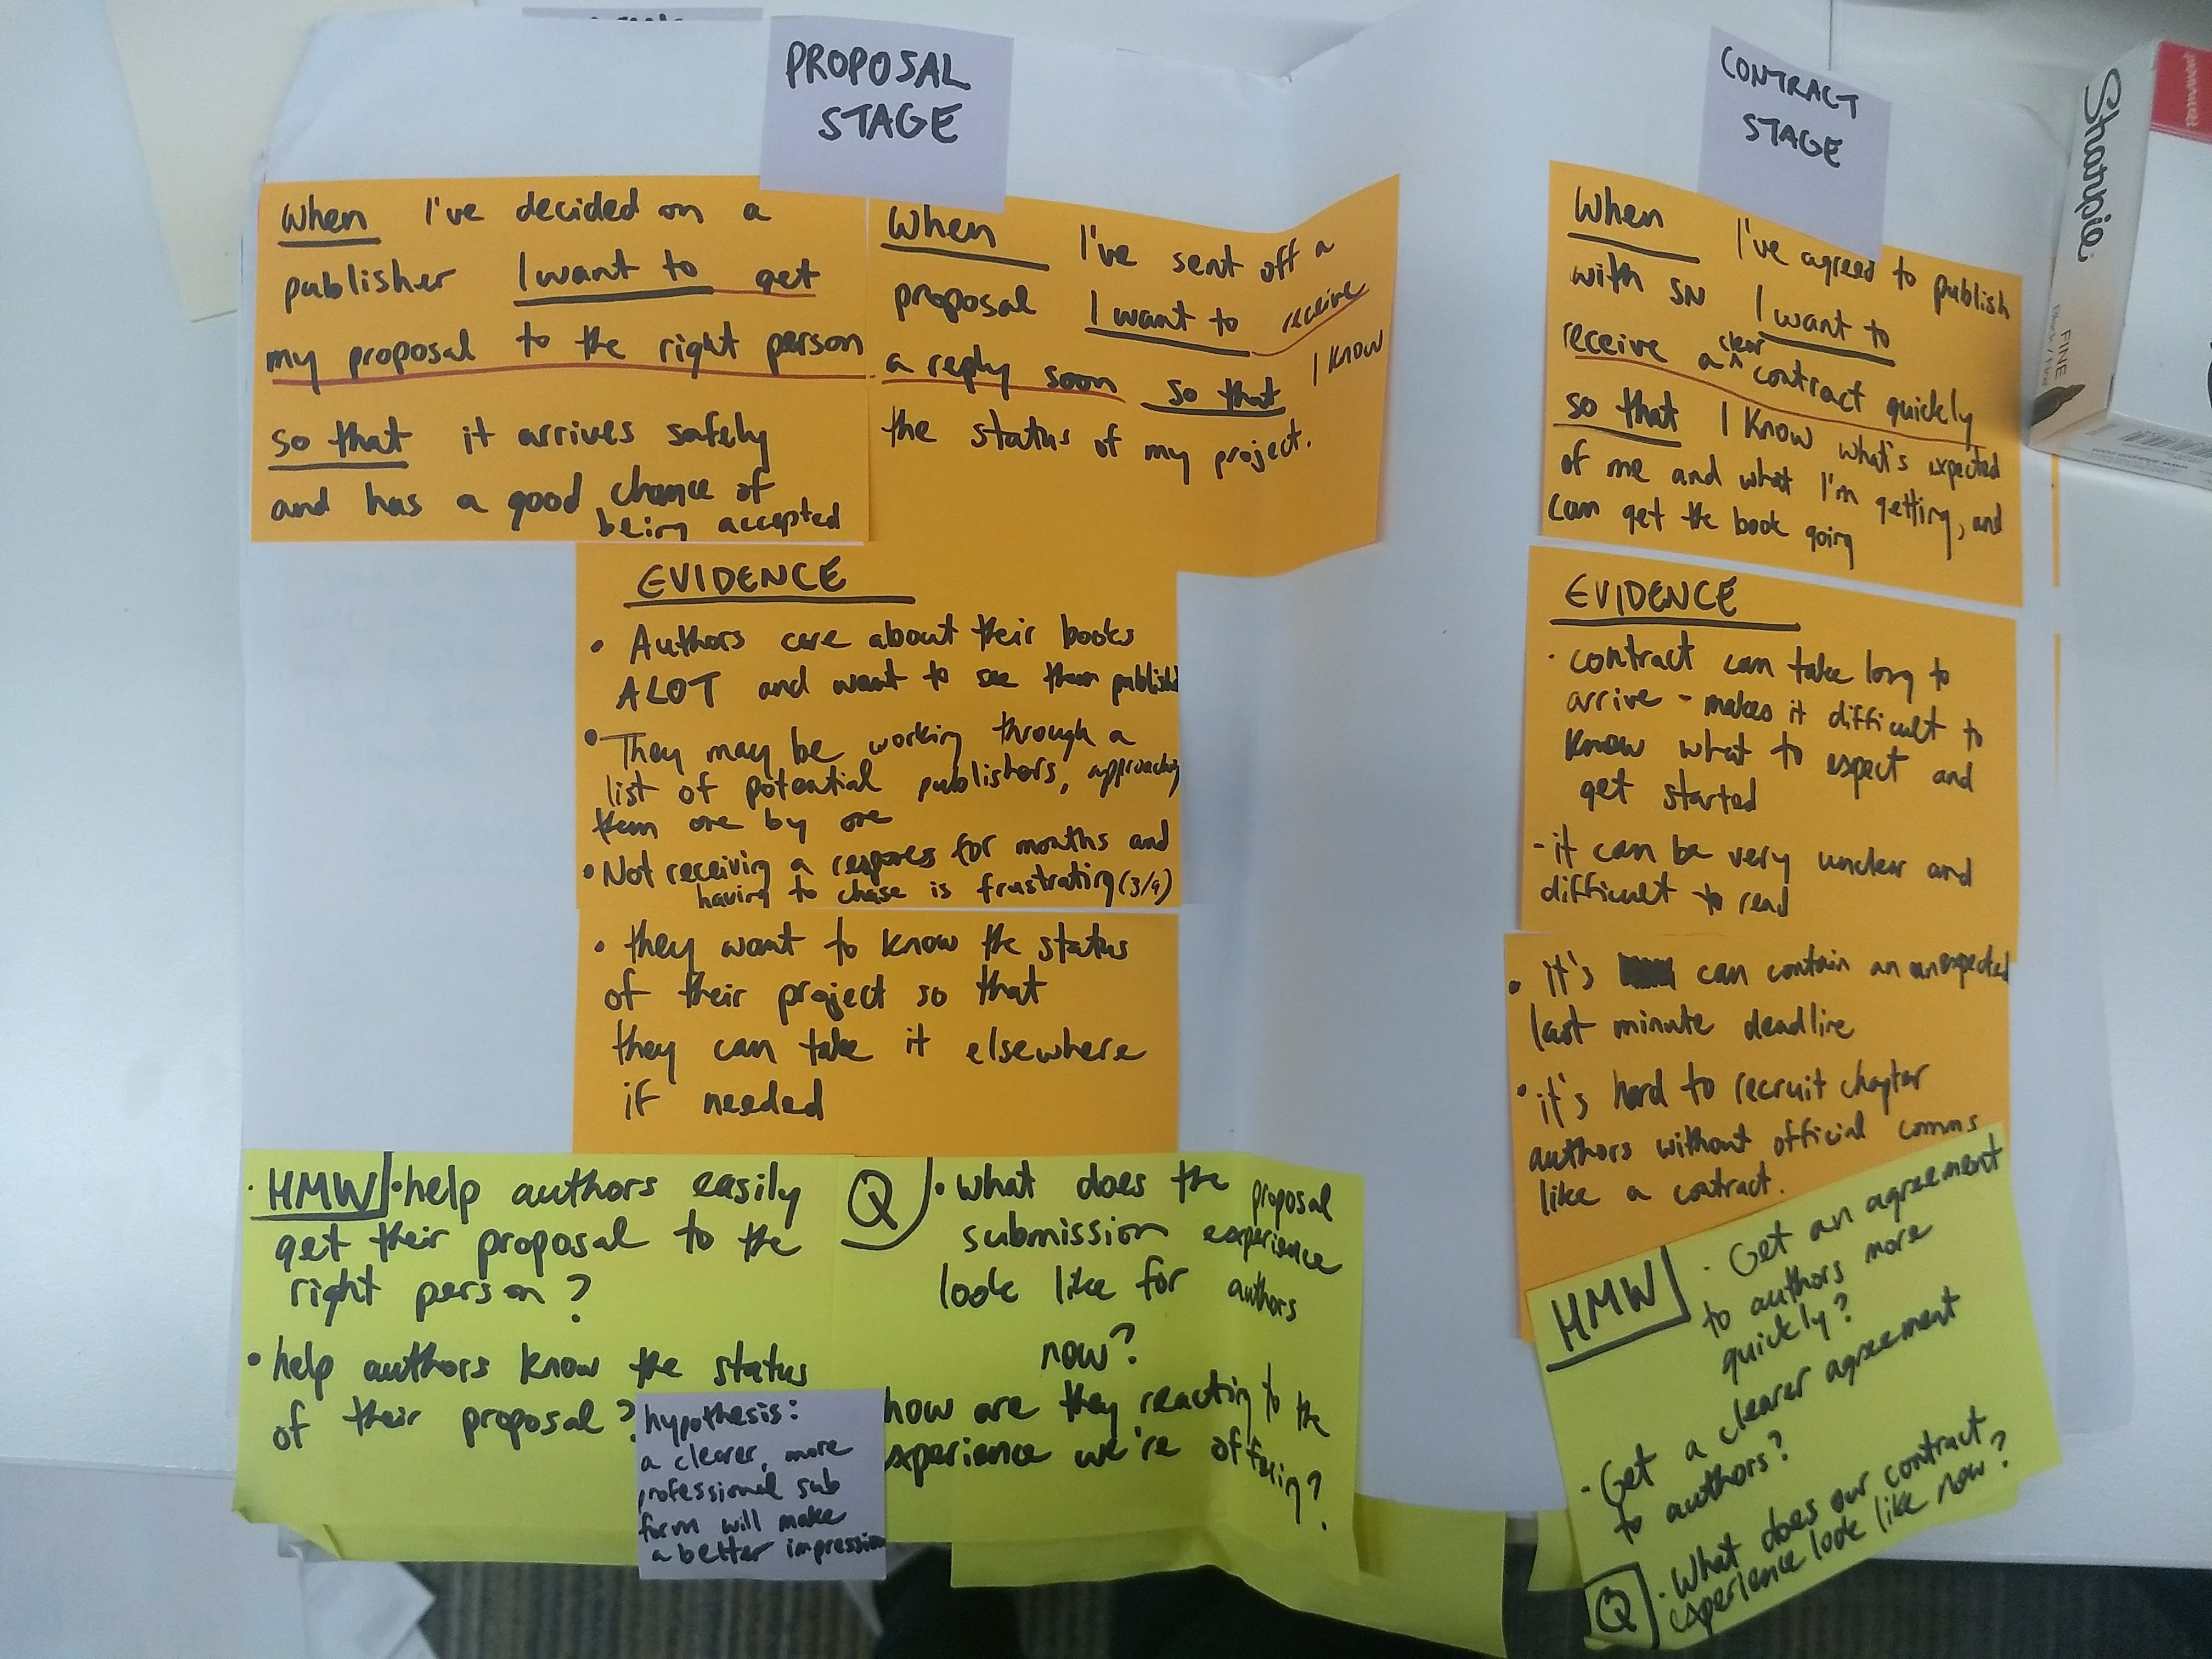 PROPOSAL
STAGE
When I've decided on a
publisher I want to get
my proposal to the right person
so that it arrives safely
and has a good chance of
being accepted
When I've sent off a
proposal I want to receive
a reply soon so that I know
the status of my project.
EVIDENCE
• Authors care about their books
ALOT and want to see them publish
• They may be working through a
list of potential publishers, approaching
them one by one
• Not receiving a respones for months and
having to chase is frustrating (3/9)
• they want to know the status
of their project so that
they can take it elsewhere
if needed
• HMW • help authors easily
get their proposal to the
right person?
• help authors know the status
of their proposal?
hypothesis:
a clearer, more
professional sub
form will make
a better impression
Q • What does the proposal
submission experience
look like for authors
now?
how are they reacting to the
experience we're offering?
CONTRACT
STAGE
When I've agreed to publish
with SN I want to
receive a clear contract quickly
so that I know what's expected
of me and what I'm getting, and
can get the book going
EVIDENCE
• contract can take long to
arrive - makes it difficult to
know what to expect and
get started
- it can be very unclear and
difficult to read
• it's can contain an unexpected
last minute deadline
• it's hard to recruit chapter
authors without official comms
like a contract.
HMW • Get an agreement
to authors more
quickly?
• Get a clearer agreement
to authors?
Q • What does our contract
experience look like now?
Sharpie
FINE